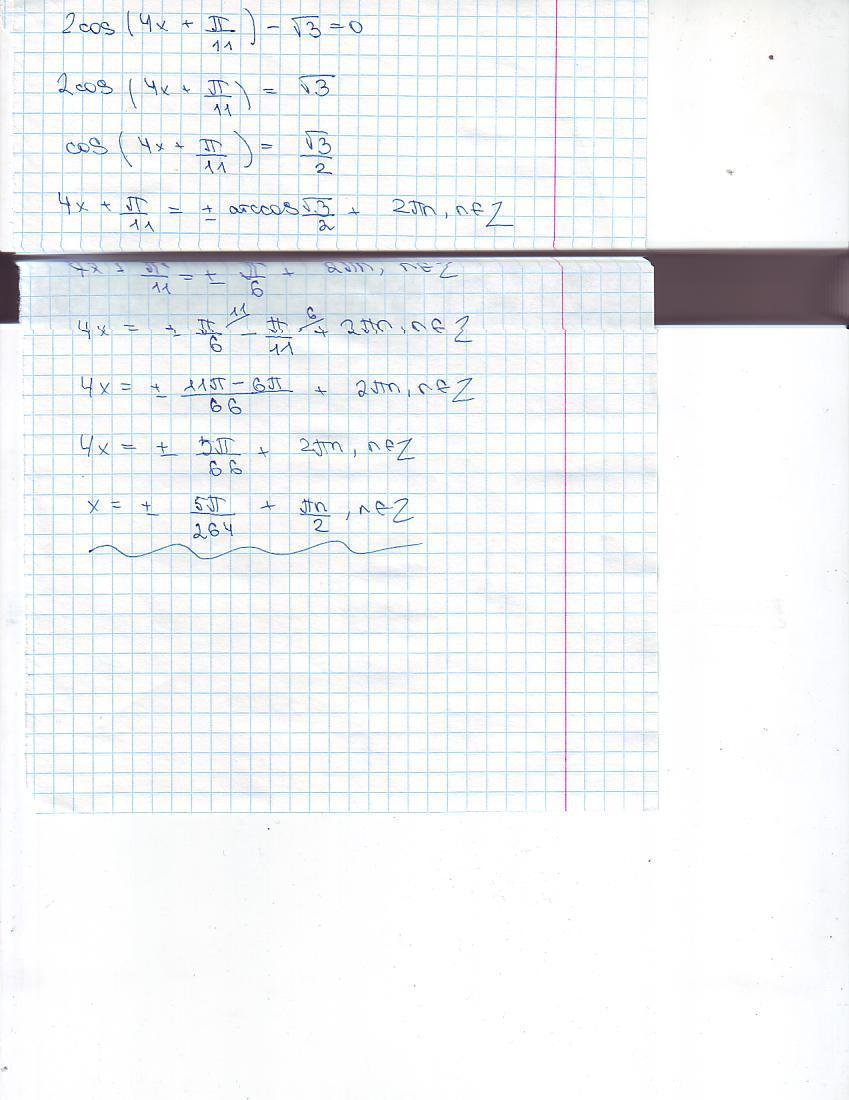 2cos(4x + π/11) - √3 = 0
2cos(4x + π/11) = √3
cos(4x + π/11) = √3/2
4x + π/11 = ± arccos √3/2 + 2πn, n∈Z
4x + π/11 = ± π/6 + 2πn, n∈Z
4x = ± π/6 11 - π/11 6 + 2πn, n∈Z
4x = ± 11π - 6π/66 + 2πn, n∈Z
4x = ± 5π/66 + 2πn, n∈Z
x = ± 5π/264 + πn/2, n∈Z